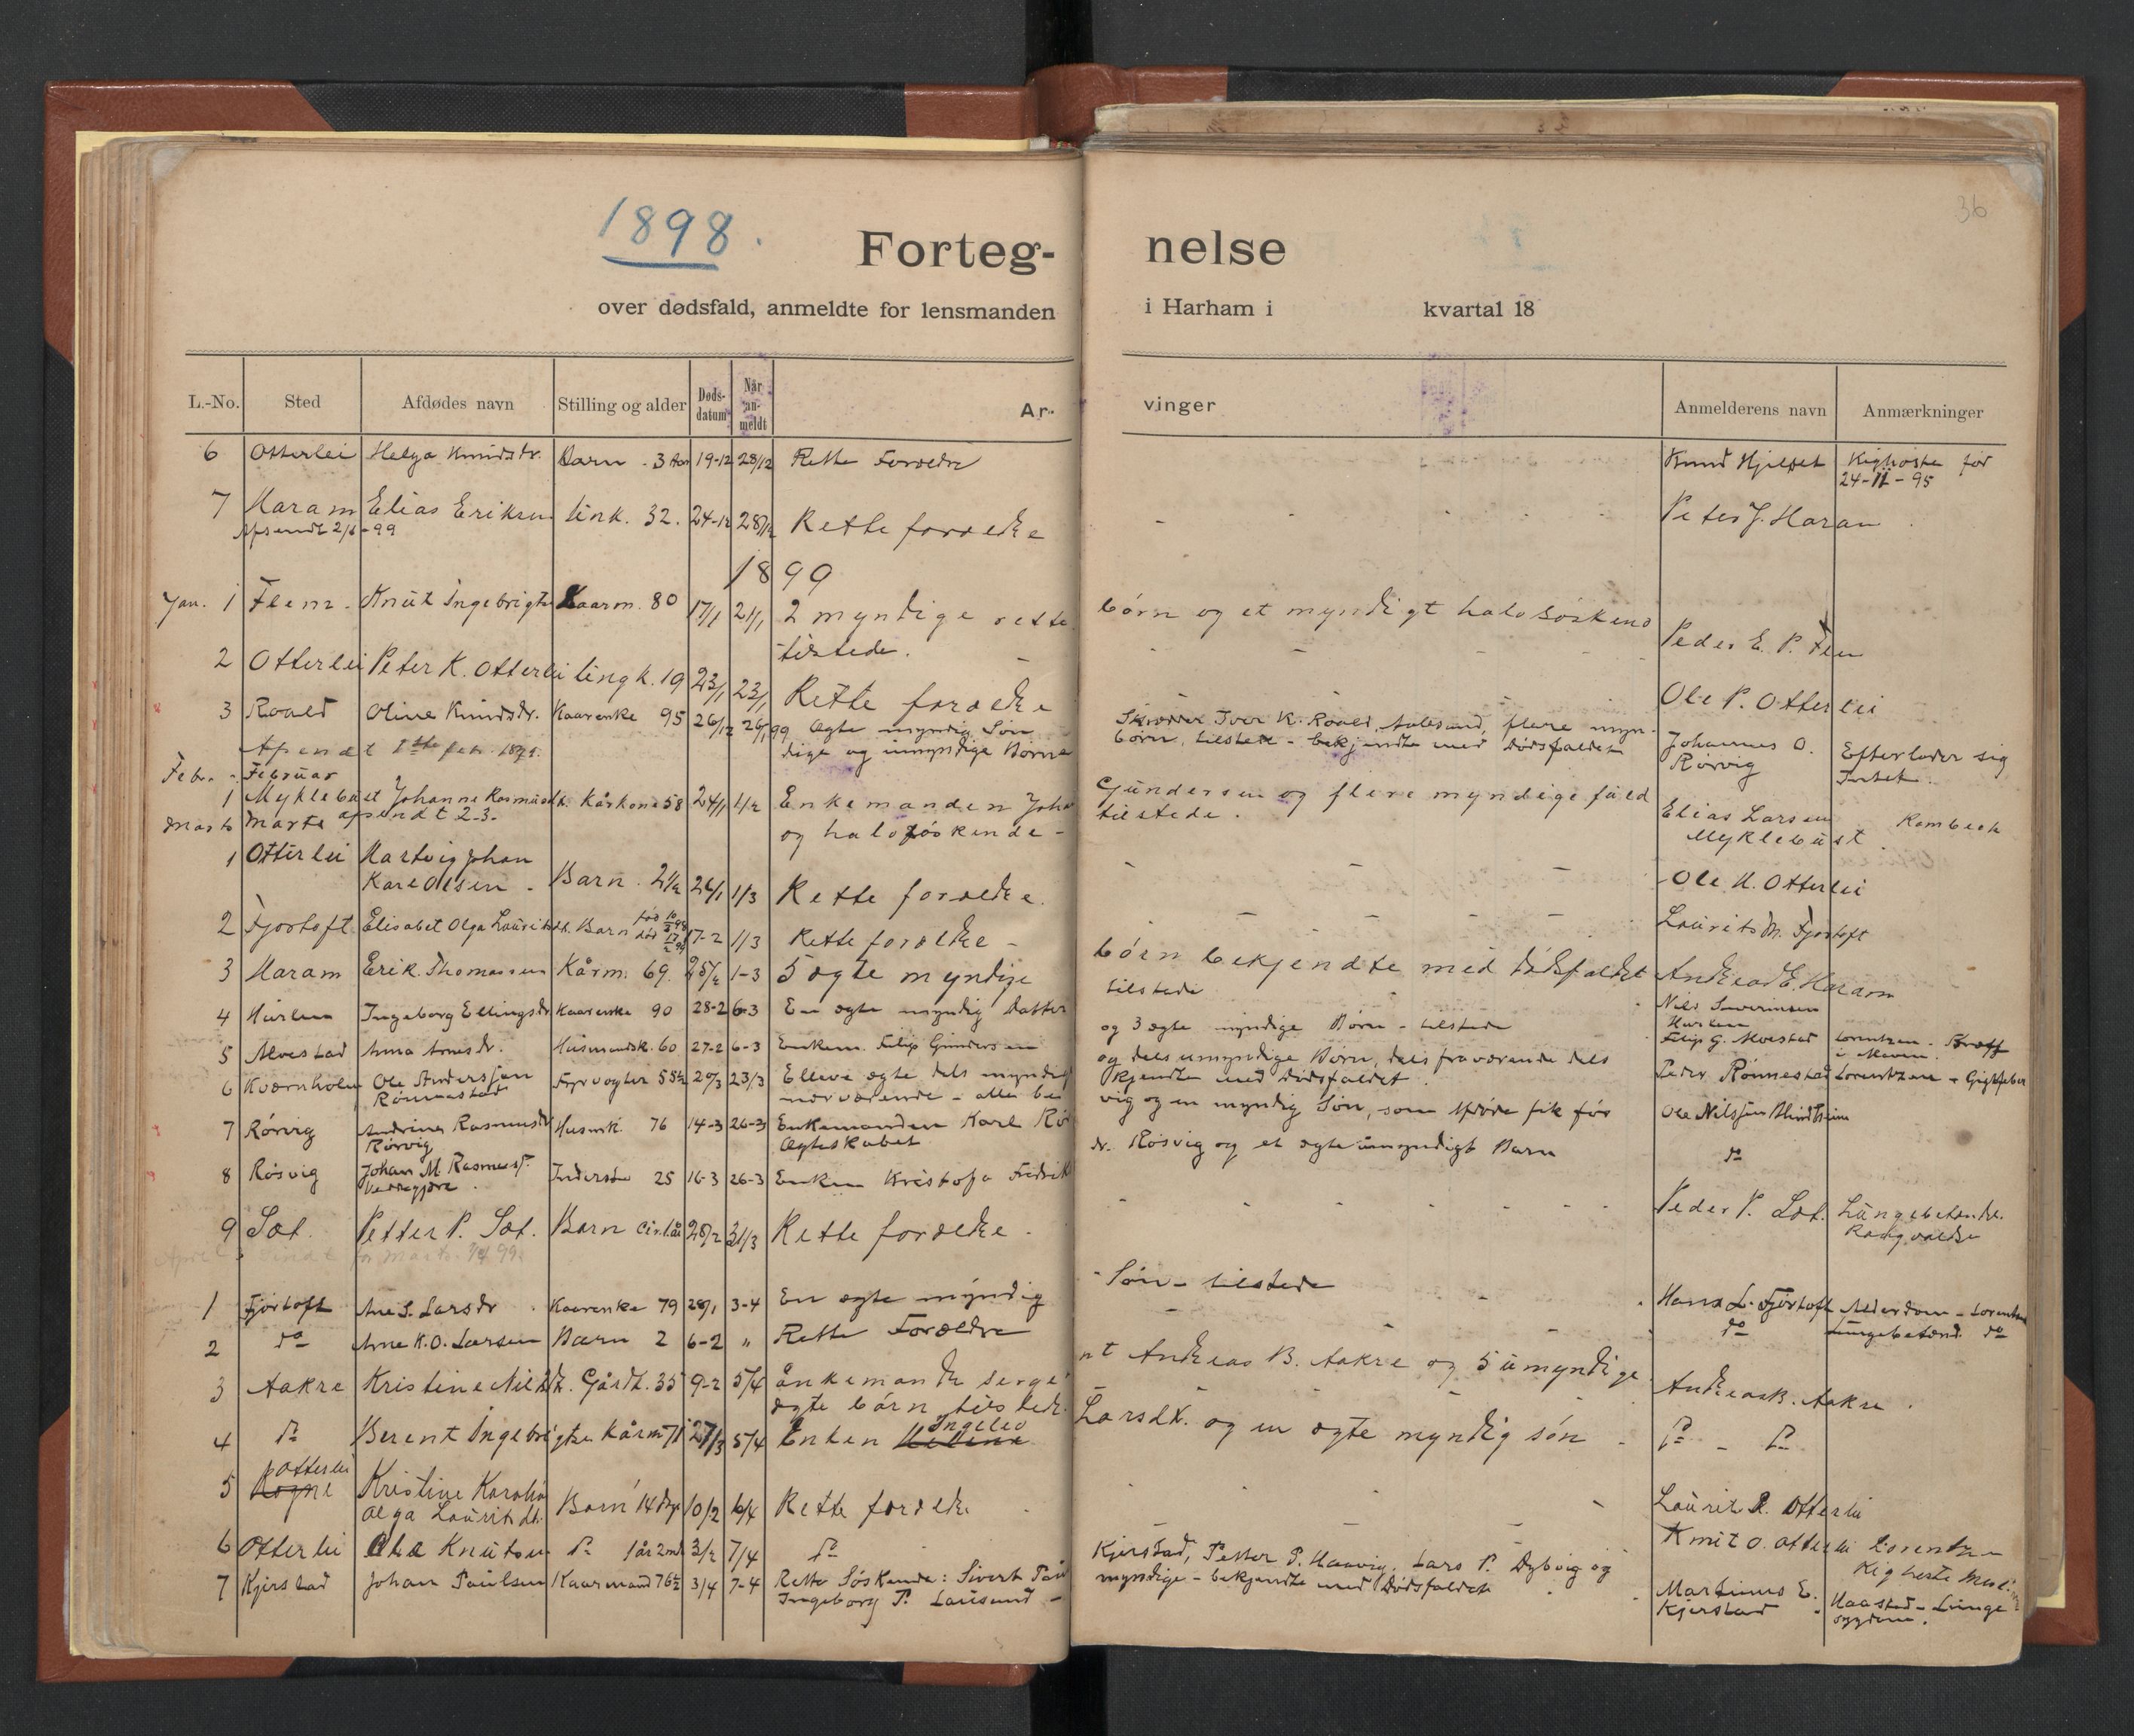 36
1898.
Forteg- nelse
over dødsfald, anmeldte for lensmanden i Harham i kvartal 18
L.-No. Sted Afdødes navn Stilling og alder Døds-datum Når an-meldt Ar- vinger Anmelderens navn Anmærkninger
6 Otterlei Helga Knudsdr. Barn - 3 Aar 19-12 28/12 Rette Forældre Knud Hjelset Kighoste før
24-11-95
7 Haram Elias Eriksen Unk. 32. 24-12 28/12 Rette forældre Peter J. Haram
Afsendt 2/1-99
1899
Jan. 1 Flem. Knut Ingebrigts Kaarm. 80 17/1 21/1 2 myndige rette børn og et myndigt halvsøskend Peder E. P. Flem
tilstede.
2 Otterlei Peter K. Otterlei Ungk. 19 23/1 23/1 Rette forældre Ole P. Otterlei
3 Roald Oline Knudsdr. Kaarenke 95 26/12 26/1 99 Ægte myndig Søn Skrædder Iver K. Roald, Aalesund, flere myn-
dige og umyndige Børne børn, tilstede - bekjendte med Dødsfaldet Johannes O.
Rørvig Efterlader sig
Intet.
Afsendt 1ste febr. 1899.
Febr. - Februar
1 Myklebust Johanne Rasmusdt. Kårkone 58 24/1 1/2 Enkemanden Joh Gundersen og flere myndige fuld
og halvsøskende - tilstede. Elias Larsen
Myklebust. Rambech
Marts Marts afsendt 2-3-
1 Otterlei Hartvig Johan
Karl Olsen - Barn. 2 1/2 26/1 1/3 Rette forældre. Ole H. Otterlei
2 Fjørtoft Elisabet Olga Lauritsdt. Barn 17-2 1/3 Rette forældre - Laurits M. Fjørtoft
3 Haram Erik Thomassen Kårm. 69. 25/2 1-3 5 ægte myndige børn bekjendte med dødsfaldet
tilstede Andreas E. Haram
4 Hurlen Ingeborg Ellingsdr Kaarenke 90 28-2 6-3 En ægte myndig Datter og 3 ægte myndige Børn - tilstede Nils Severinsen
Hurlen
5 Alvestad Anna Arnesdr. Husmandsk. 60 27-2 6-3 Enkem. Filip Gundersen og dels umyndige Børn, dels fraværende dels Filip G. Alvestad Lorentzen - Kræft
i Maven.
6 Kværnholm Ole Andersson
Rønnestad Fyrvogter 55 1/2 20/3 23/3 Elleve ægte dels myndig
nærværende - alle be kjendte med Dødsfaldet. Peder Rønnestad Lorentzen - Gigtfeber
7 Rørvig Andrine Rasmusdr
Rørvig Husmk. 76 14-3 26-3 Enkemanden Karl Rør vig og en myndig Søn, som Afdøde fik før
Ægteskabet Ole Nilssen Blindheim
8 Røsvig Johan M. Rasmuss.
Inderste 25 16-3 26-3 Enken Kristofa Fredrik dr. Røsvig og et ægte umyndigt Barn do
9 Sæt. Petter P. Sæt. Barn Cir. 1 år 28/2 31/3 Rette forældre. Peder P. Sæt. Lungebetændt.
April sendt for Marts 1/4 99.
1 Fjørtoft Ane S. Larsdr. Kaarenke 79 28/1 3-4 En ægte myndig Søn - tilstede Hans L. Fjørtoft Alderdom - Lorentzen
2 do Arne K. O. Larsen Barn 2 6-2 " Rette Forældre do Lungebetænd. do
3 Aakre Kristine Nilsdt. Gårdk. 35 9-2 5/4 Ånkemande serge nt Andreas B. Aakre og 5 umyndige
ægte børn tilstede. Andreas B. Aakre.
4 do Berent Ingebrigtsn Kårm 71 27/3 5/4 Enken Ingelev Larsdt. og en ægte myndig søn - do - do
5 Otterlei
Rogne Kristine Karoline
Olga Lauritsdt. Barn 14 dage 10/2 6/4 Rette forældre Laurit R. Otterlei
6 Otterlei Ole Knutsen do 1 år 2 md 3/2 7/4 do Knut O. Otterlei Lorentzen
Kighoste
7 Kjerstad Johan Paulsen Kaarmand 76 1/2 3/4 7-4 Rette Søskende: Sivert Paul Kjerstad, Petter P. Haavig, Lars P. Dybvig og
Ingeborg P. Lausund - myndige - bekjendte med Dødsfaldet Martinus E.
Kjerstad Haastad - Lunge
sygdom.